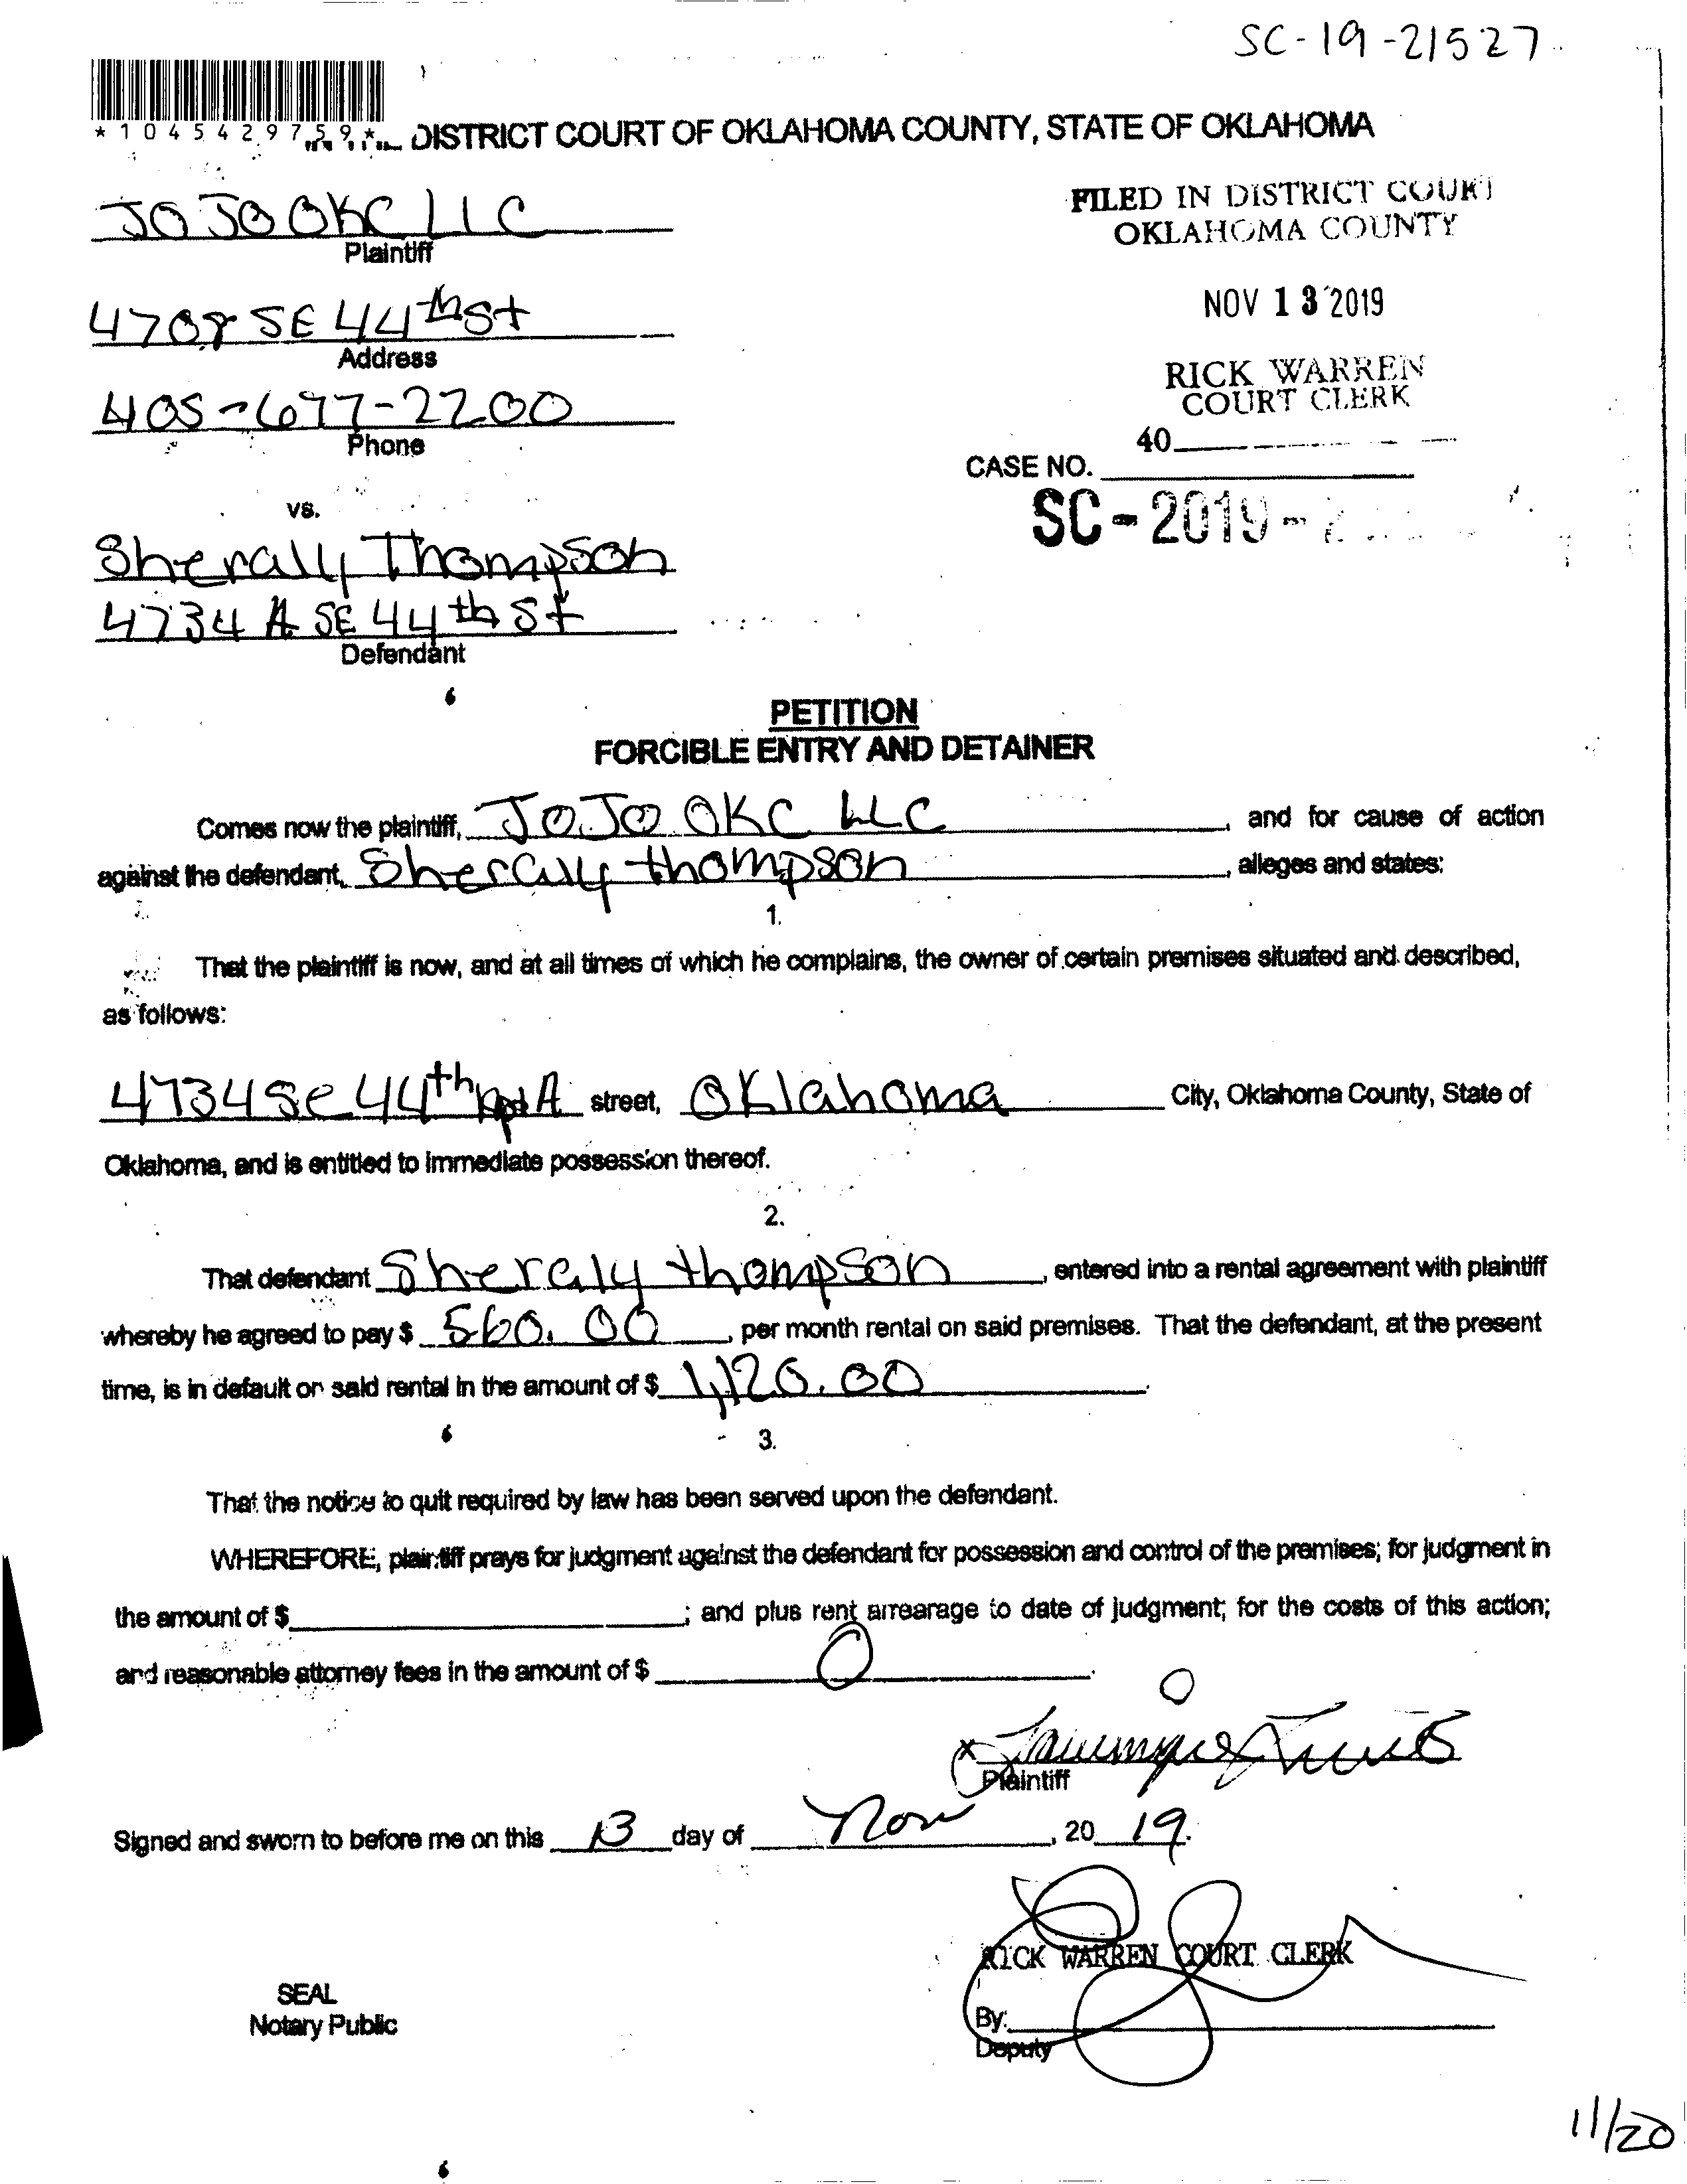 SC-19-21527
*1045429759* DISTRICT COURT OF OKLAHOMA COUNTY, STATE OF OKLAHOMA
JOJO OKC LLC
Plaintiff
FILED IN DISTRICT COURT
OKLAHOMA COUNTY
4708 SE 44th St
Address
NOV 13 2019
405-677-2200
Phone
RICK WARREN
COURT CLERK
40
CASE NO.
SC-2019-2
vs.
Sherally Thompson
4734 A SE 44th St
Defendant
PETITION
FORCIBLE ENTRY AND DETAINER
Comes now the plaintiff, JOJO OKC LLC, and for cause of action
against the defendant, Sheraly thompson, alleges and states:
1.
That the plaintiff is now, and at all times of which he complains, the owner of certain premises situated and described,
as follows:
4734 Se 44th Apt A street, Oklahoma City, Oklahoma County, State of
Oklahoma, and is entitled to immediate possession thereof.
2.
That defendant Sheraly thompson, entered into a rental agreement with plaintiff
whereby he agreed to pay $ 560.00, per month rental on said premises. That the defendant, at the present
time, is in default on said rental in the amount of $ 1,120.00.
3.
That the notice to quit required by law has been served upon the defendant.
WHEREFORE, plaintiff prays for judgment against the defendant for possession and control of the premises; for judgment in
the amount of $; and plus rent arrearage to date of judgment; for the costs of this action;
and reasonable attorney fees in the amount of $ 0.
x
Plaintiff
Signed and sworn to before me on this 13 day of Nov, 20 19.
RICK WARREN COURT CLERK
SEAL
Notary Public
By:
Deputy
11/20